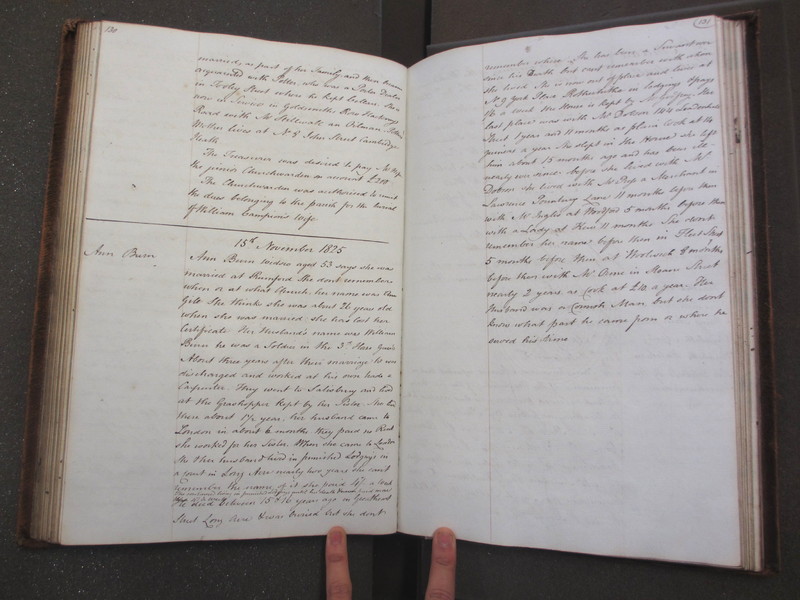 130
married, as part of her Family and then became
acquainted with Potter, who was a Dealer
in Tooley Street where he kept
now in Service in Goldsmiths Row Hackney
Road with Mr an Oilman
Mother lives at No 8 John Street Cambridge
Heath
The Treasurer was desired to pay Mr
the junior Churchwarden on account £200
The Churchwarden was authorised to remit
the dues belonging to the parish for the burial
of William Campion's Wife
15th November 1825
Ann Burn
Ann Burn Widow aged 53 says she was
married at Rumford She dont remember
when or at what Church, her name was Ann
Gile She thinks she was about 26 years old
when she was married she has lost her
Certificate Her Husband's name was William
Burn he was a Soldier in the 3rd
About three years after their marriage he was
discharged and worked at his own trade a
Carpenter They went to Salisbury and lived
at the Grasshopper kept by her Sister She lived
there about 1½ year, her husband came to
London in about 6 months they paid no Rent
she worked for her Sister. When she came to London
She & her husband lived in furnished Lodgings in
a court in Long Acre nearly two years she cant
remember the name of it she paid 4/ a week
He died between 15 & 16 years ago in
Street Long Acre & was buried but she dont
131
remember where She has been a Servant ever
since his Death but cant remember with whom
she lived She is now out of place and lives at
No 9 York Place Rotherhithe in lodgings & pays
a week the House is kept by Her
last place was with Mr Dobson
Street 1 year and 11 months as plain Cook at 14
guineas a year She slept in the House she left
him about 15 months ago and has been
nearly ever since before she lived with Mr
Dobson she lived with Mr a Merchant in
Laurence Pountney Lane 11 months before then
with Mr Inglis at 5 months before then
with a Lady at Kew 11 months She dont
remember her name before then in Fleet Street
5 months before then at Woolwich 8 months
before then with Mr in Street
nearly 2 years as Cook at £12 a year. Her
Husband was a Cornish Man but she dont
know what part he came from or where he
served his time